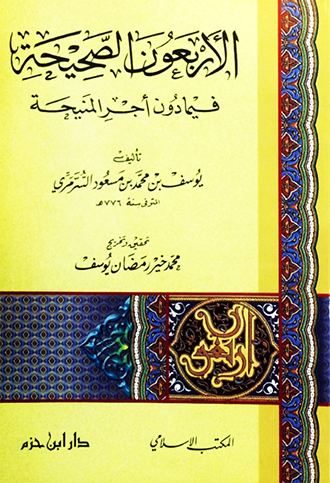 الأربعون الصحيحة
فيما دون أجر المنيحة
تأليف
يوسف بن محمد بن مسعود السرمري
المتوفى سنة ٧٧٦هـ
تحقيق وتخريج
محمد خير رمضان يوسف
المكتب الإسلامي
دار ابن حزم